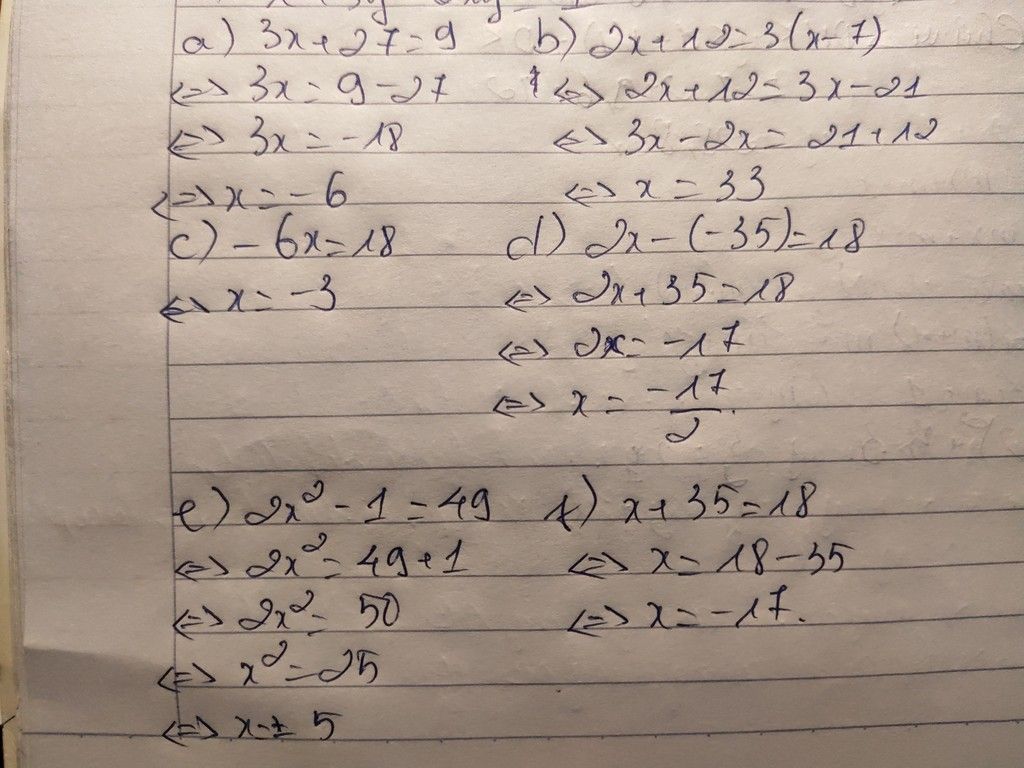 a) 3x+27=9
⇔ 3x=9-27
⇔ 3x=-18
⇔ x=-6
b) 2x+12=3(x-7)
⇔ 2x+12=3x-21
⇔ 3x-2x=21+12
⇔ x=33
c) -6x=18
⇔ x=-3
d) 2x-(-35)=18
⇔ 2x+35=18
⇔ 2x=-17
⇔ x=-17/2.
e) 2x²-1=49
⇔ 2x²=49+1
⇔ 2x²=50
⇔ x²=25
⇔ x=±5
f) x+35=18
⇔ x=18-35
⇔ x=-17.